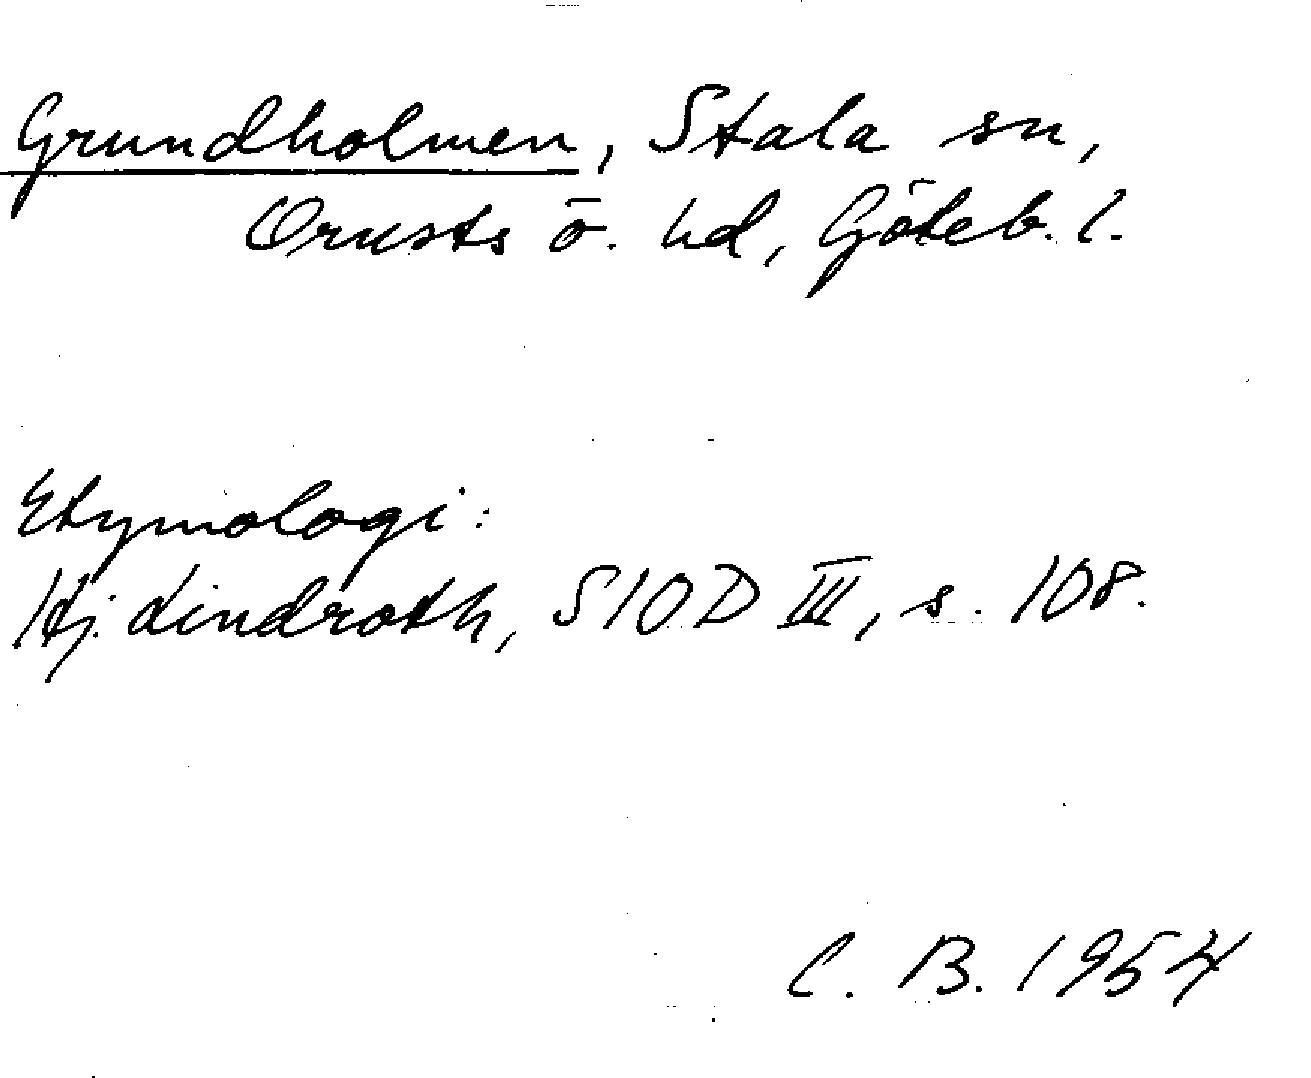 Grundholmen, Stala sn,
Orusts ö. hd, Göteb. l.
Etymologi:
Hj. Lindroth, SIOD III, s. 108.
C. B. 1954